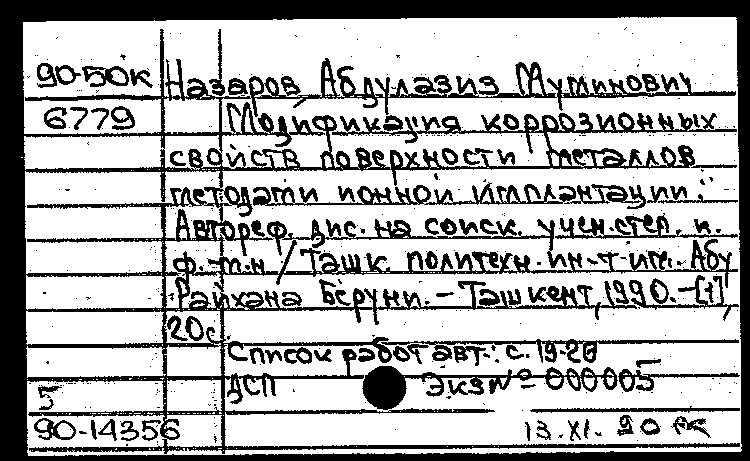 90-50к Назаров Абдулазиз Муминович
6779 Модификация коррозионных
свойств поверхности металлов
методами ионной имплантации:
Автореф. дис. на соиск. учен. степ. к.
ф.-м.н / Ташк. политехн. ин-т им. Абу
Райхана Беруни. - Ташкент, 1990. - [1],
20с
Список работ авт.: с. 19-20
ДСП Экз № 000005
5
90-14356 13.XI.90